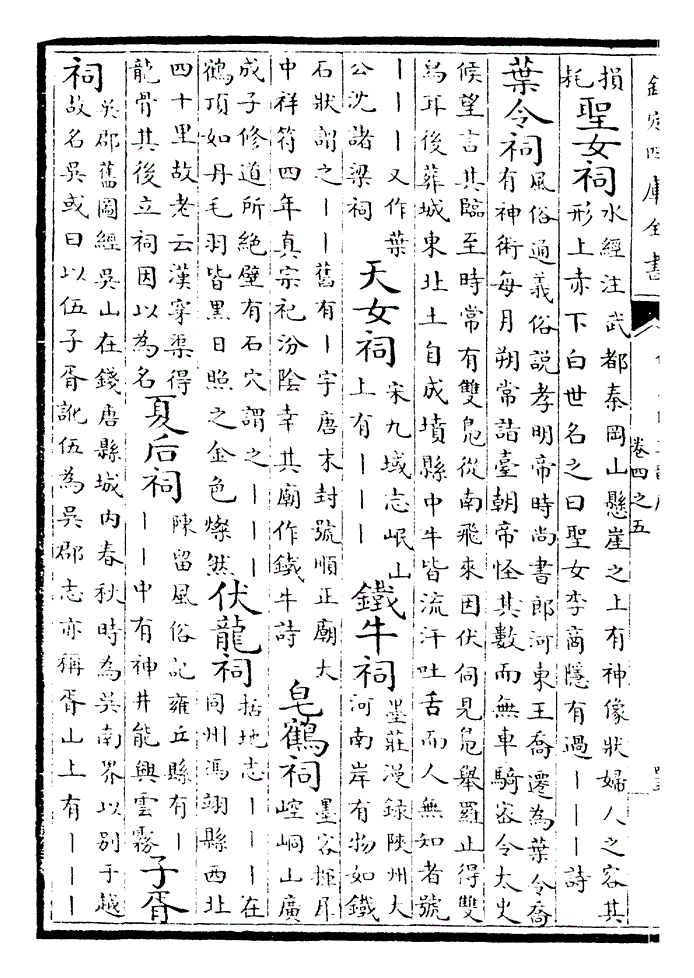 欽定四庫全書
卷四之五
損
耗
聖女祠
水經注武都秦岡山懸崖之上有神像狀婦人之容其
形上赤下白世名之曰聖女李商隱有過丨丨丨詩
葉令祠
風俗通義俗說孝明帝時尚書郎河東王喬遷為葉令喬
有神術每月朔常詣臺朝帝怪其數而無車騎宻令太史
候望言其臨至時常有雙鳧從南飛來因伏伺見鳧舉羅止得雙
舄耳後葬城東北土自成墳縣中牛皆流汗吐舌而人無知者號
丨丨丨又作葉
公沈諸梁祠
天女祠
宋九域志岷山
上有丨丨丨
鐵牛祠
墨莊漫錄陜州大
河南岸有物如鐵
石狀謂之丨丨舊有丨字唐末封號順正廟大
中祥符四年真宗祀汾陰幸其廟作鐵牛詩
皂鶴祠
墨客揮犀
崆峒山廣
成子修道所絶壁有石穴謂之丨丨丨
鶴頂如丹毛羽皆黑日照之金色燦然
伏龍祠
括地志丨丨丨在
同州馮翊縣西北
四十里故老云漢穿渠得
龍骨其後立祠因以為名
夏后祠
陳留風俗記雍丘縣有丨
丨丨中有神井能興雲霧
子胥
祠
吳郡舊圖經吳山在錢唐縣城内春秋時為吳南界以別于越
故名吳或曰以伍子胥訛伍為吳郡志亦稱胥山上有丨丨丨